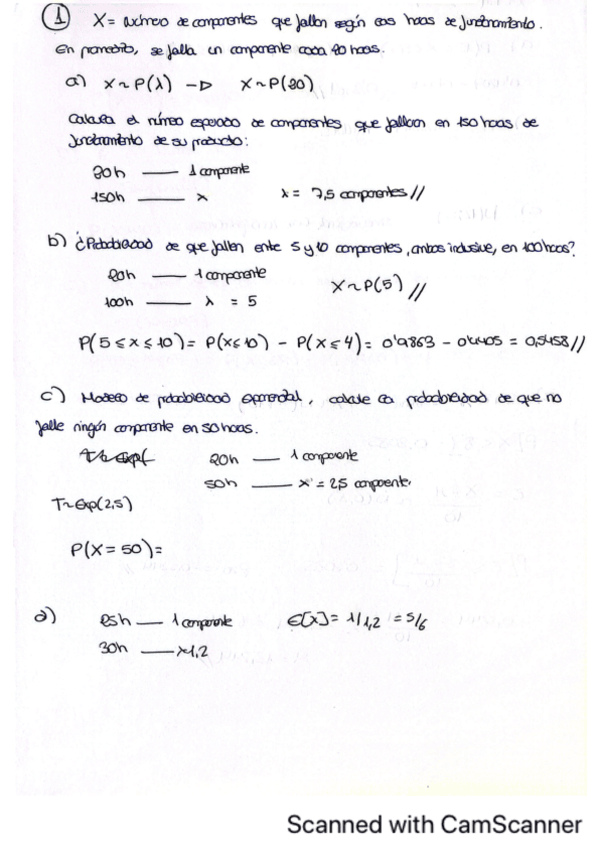 ① X = número de componentes que fallan según las horas de funcionamiento.
En promedio, se falla un componente cada 20 horas.
a) X ~ P(λ) → X ~ P(20)
Calcula el número esperado de componentes que fallan en 150 horas de
funcionamiento de su producto:
20h — 1 componente
150h — x λ = 7,5 componentes //
b) ¿Probabilidad de que fallen entre 5 y 10 componentes, ambos inclusive, en 100 horas?
20h — 1 componente
100h — λ = 5 X ~ P(5) //
P(5 ≤ x ≤ 10) = P(x ≤ 10) - P(x ≤ 4) = 0'9863 - 0'4405 = 0,5458 //
c) Modelo de probabilidad exponencial, calcule la probabilidad de que no
falle ningún componente en 50 horas.
T ~ exp( 20h — 1 componente
50h — x = 2,5 componente.
T ~ Exp(2,5)
P(X = 50) =
d) 25h — 1 componente E[X] = 1/1,2 = 5/6
30h — x 1,2
Scanned with CamScanner